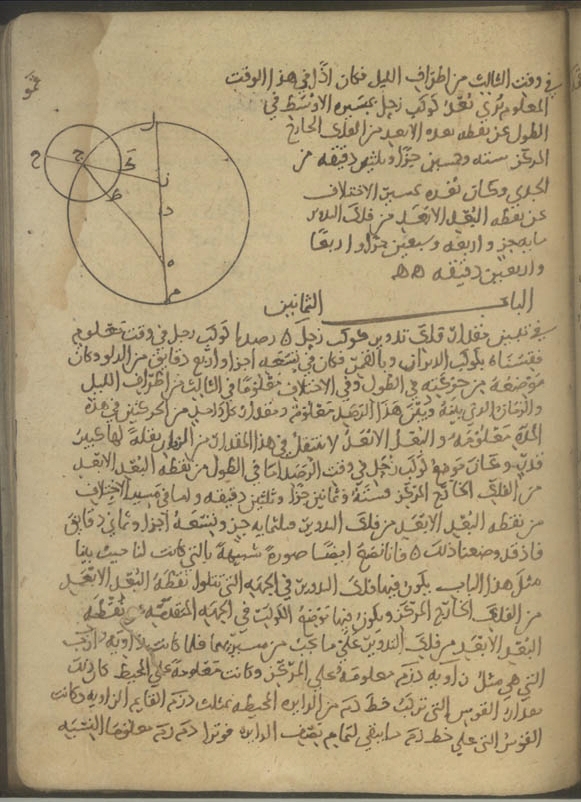 في وقت الثالث من اطراف الليل فكان اذًا في هذا الوقت
المعلوم يُرى بُعد كوكب زحل بمسيره الاوسط في
الطول عن نقطه بعده الابعد من الفلك الخارج
المركز سته وخمسين جزًا وثلثين دقيقه من
الجدي وكان بُعده بمسير الاختلاف
عن نقطه البُعد الابعد من فلك التدوير
مايه جز واربعه وسبعين جزًا واربعًا
واربعين دقيقه ه ه
الباب الثمانين
في تبيين مقدار فلك تدوير كوكب زحل ه رصدنا كوكب زحل في وقت معلوم
فقسناه بكوكب الدبران وبالقمر فكان في تسعه اجزا واربع دقايق من الدلو وكان
موضعه من حركته في الطول وفي الاختلاف معلومًا في الثالث من اطراف الليل
والزمان الذي بينه وبين هذا الرصد معلوم ومقدار كل واحد من الحركتين في هذه
المده معلومه والبعد الابعد لا ينتقل في هذا المقدار من الزمان نقلة لها كبير
قدر وكان موضع كوكب زحل في وقت الرصد اما في الطول من نقطه البُعد الابعد
من الفلك الخارج المركز فستة وثمانين جزًا وثلثين دقيقه واما في مسير الاختلاف
من نقطه البُعد الابعد من فلك التدوير فثلثمايه جز وتسعة اجزا وثماني دقايق
فاذ قد وضعنا ذلك ه فانا نضع ايضًا صورة شبيهة بالتي كانت لنا حيث بينا
مثل هذا الباب يكون فيها فلك التدوير في الجهه التي تتلوا نقطة البُعد الابعد
من الفلك الخارج المركز ويكون فيها موضع الكوكب في الجهه المتقدمه نقطه
البُعد الابعد من فلك التدوير على ما يجب من مسيريهما فلما كانت زاويه ارحب
التي هي مثل زاويه دزم معلومة على المركز وكانت معلومة على المحيط كان ذلك
مقدار القوس التي تركب خط دم من الدايره المحيطه بمثلث دزم القايم الزاويه وكانت
القوس التي على خط زم ما يبقى لتمام نصف الدايره فوترا دم زم معلوما النسبة
ل
ج
ح
ك
ط
ن
د
ه
م